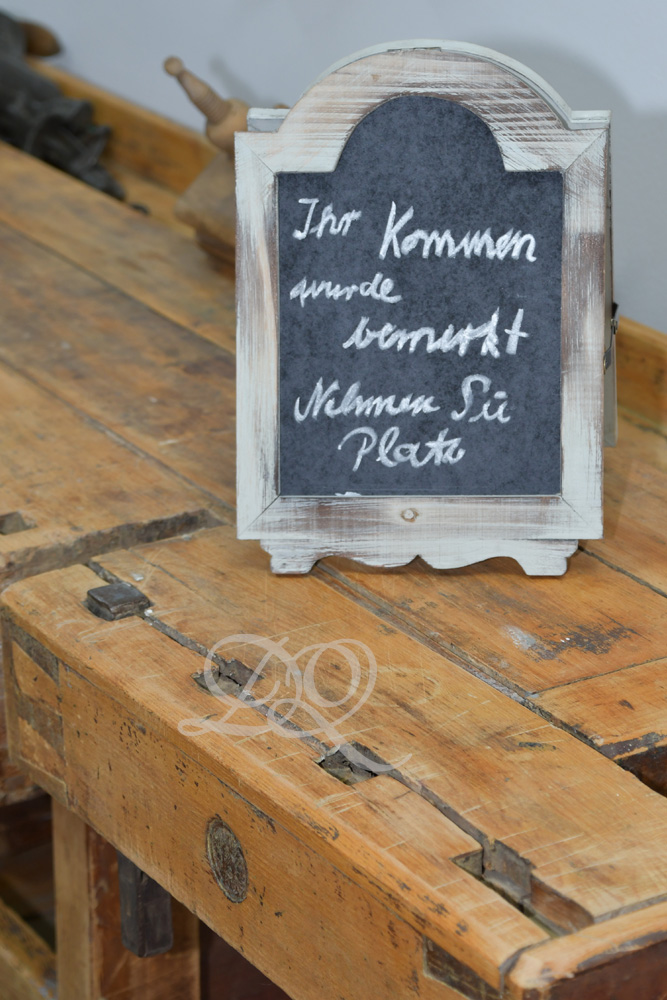 Ihr Kommen
wurde
bemerkt
Nehmen Sie
Platz